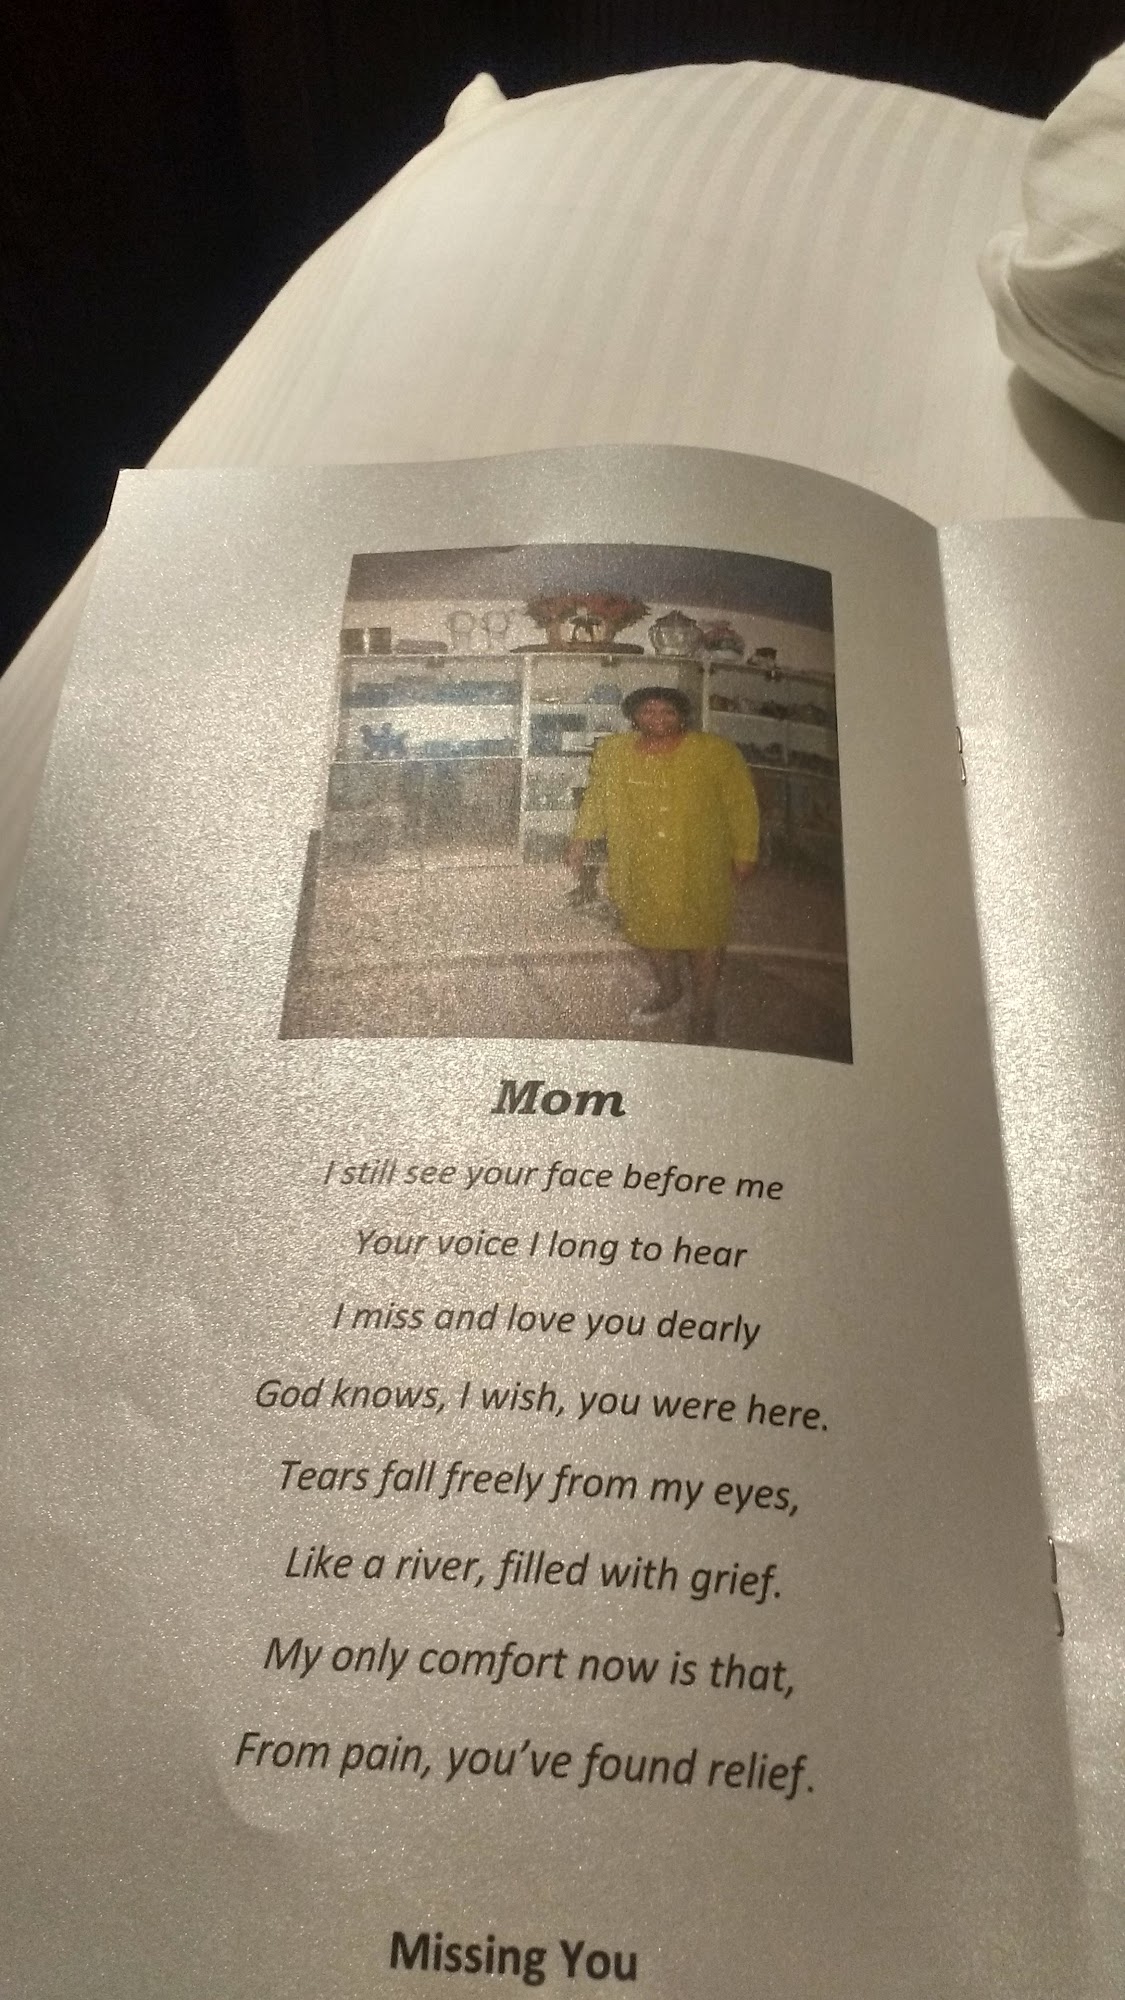 Mom
I still see your face before me
Your voice I long to hear
I miss and love you dearly
God knows, I wish, you were here.
Tears fall freely from my eyes,
Like a river, filled with grief.
My only comfort now is that,
From pain, you've found relief.
Missing You